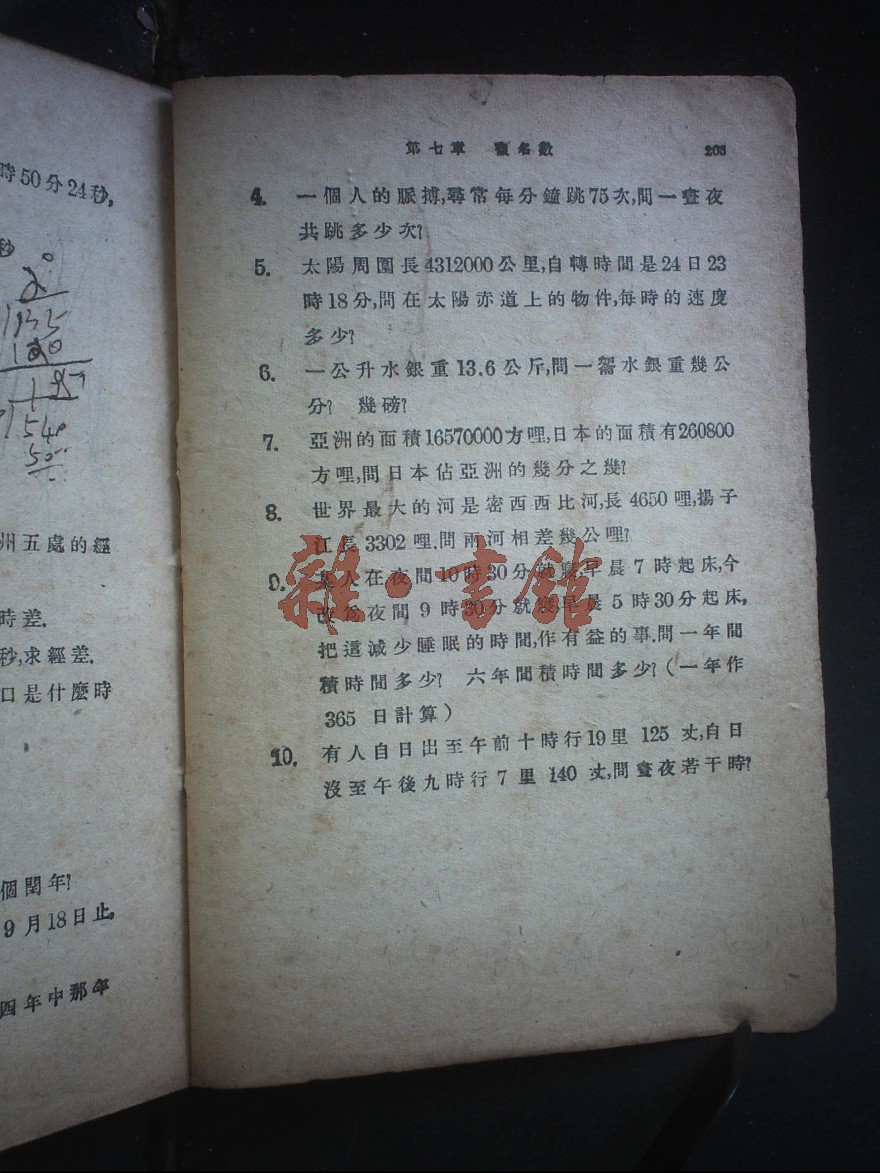 時50分24秒,
秒
州五處的經
時差.
秒,求經差.
口是什麼時
個閏年?
9月18日止,
四年中那年
第七章 複名數 205
4. 一個人的脈搏,尋常每分鐘跳75次,問一晝夜
共跳多少次?
5. 太陽周圍長4312000公里,自轉時間是24日23
時18分,問在太陽赤道上的物件,每時的速度
多少?
6. 一公升水銀重13.6公斤,問一噐水銀重幾公
分? 幾磅?
7. 亞洲的面積16570000方哩,日本的面積有260800
方哩,問日本佔亞洲的幾分之幾?
8. 世界最大的河是密西西比河,長4650哩,揚子
江長3302哩.問兩河相差幾公哩?
9. 某人在夜間10時30分就寢,早晨7時起床,今
改爲夜間9時30分就寢,早晨5時30分起床,
把這減少睡眠的時間,作有益的事.問一年間
積時間多少? 六年間積時間多少?(一年作
365日計算)
10. 有人自日出至午前十時行19里125丈,自日
沒至午後九時行7里140丈,問晝夜若干時?
雜·書館